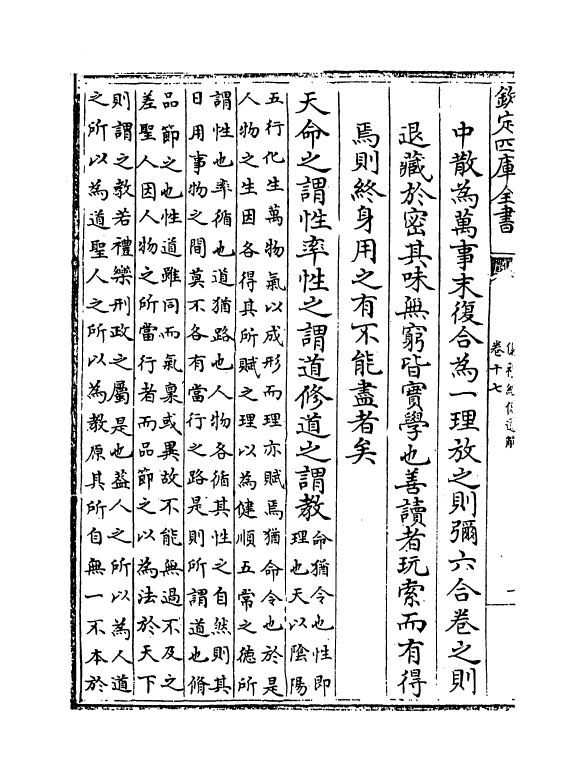 欽定四庫全書
卷十七
中散為萬事末復合為一理放之則彌六合卷之則
退藏於密其味無窮皆實學也善讀者玩索而有得
焉則終身用之有不能盡者矣
天命之謂性率性之謂道修道之謂教
命猶令也性即
理也天以陰陽
五行化生萬物氣以成形而理亦賦焉猶命令也於是
人物之生因各得其所賦之理以為健順五常之德所
謂性也率循也道猶路也人物各循其性之自然則其
日用事物之間莫不各有當行之路是則所謂道也脩
品節之也性道雖同而氣稟或異故不能無過不及之
差聖人因人物之所當行者而品節之以為法於天下
則謂之教若禮樂刑政之屬是也蓋人之所以為人道
之所以為道聖人之所以為教原其所自無一不本於